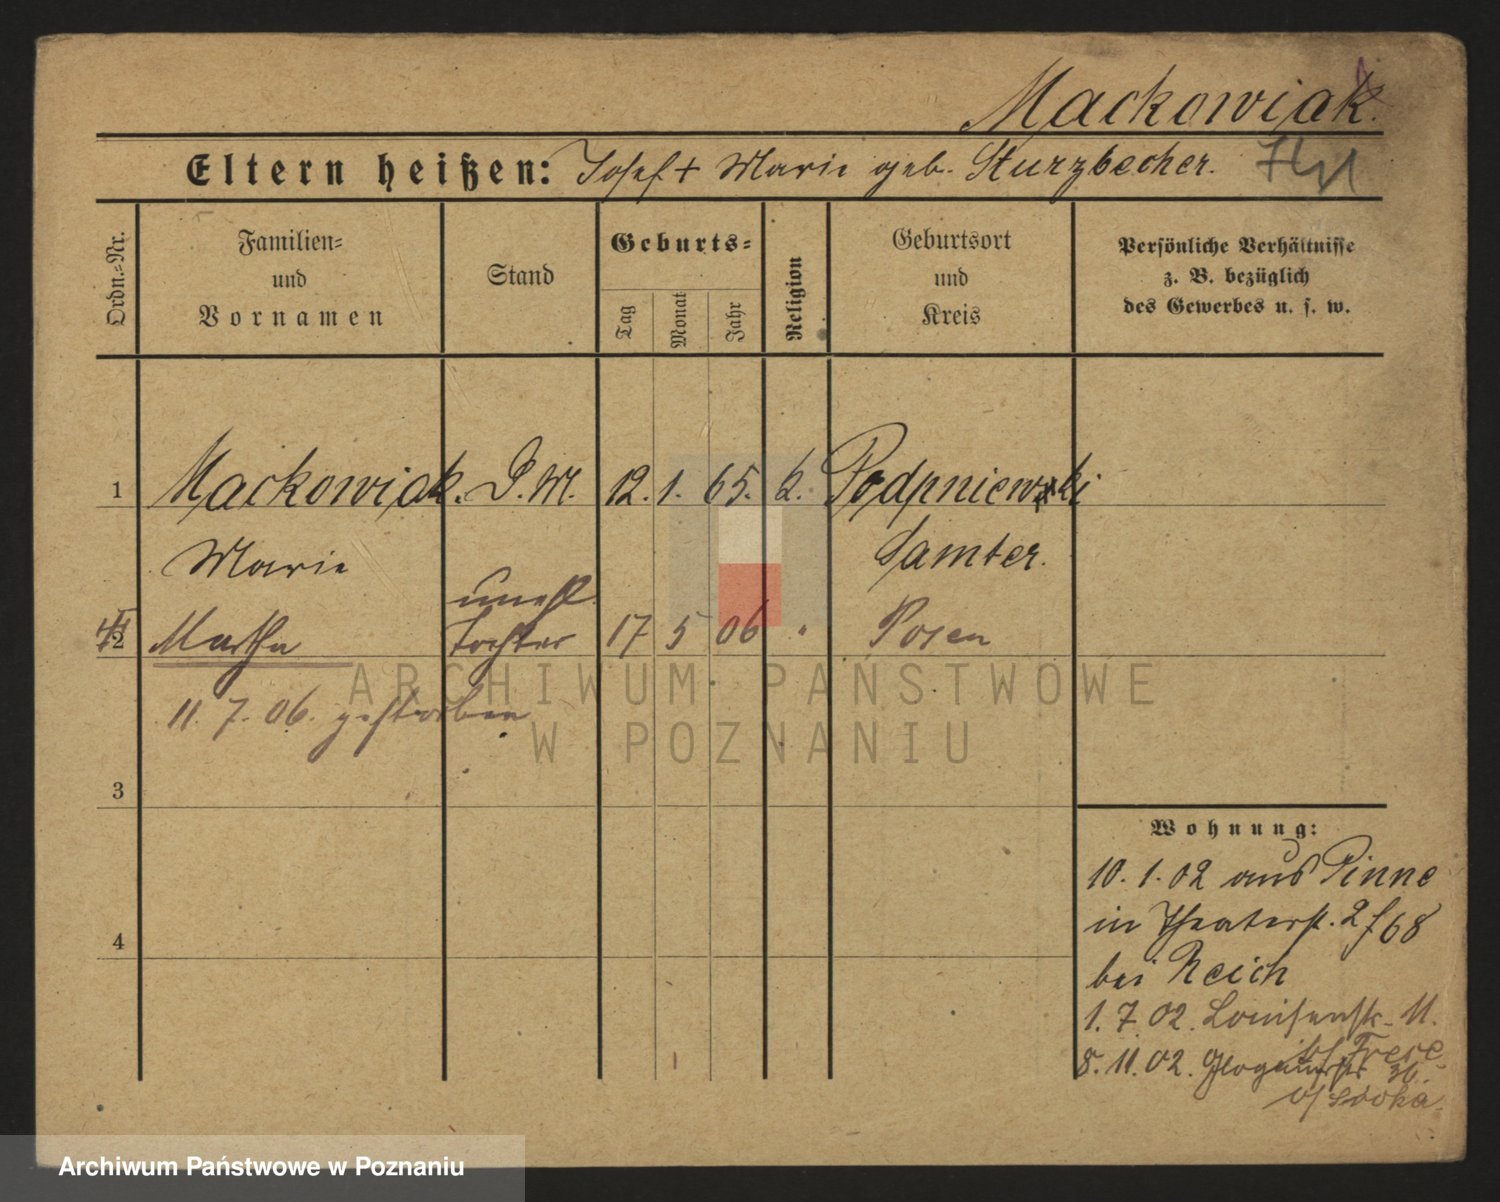 Mackowiak.
Eltern heißen: Josef + Marie geb. Sturzbecher.
Ordn.=Nr.
Familien= und Vornamen
Stand
Geburts=
Tag
Monat
Jahr
Religion
Geburtsort und Kreis
Persönliche Verhältnisse
z. B. bezüglich
des Gewerbes u. s. w.
1 Mackowiak. D. M. 12. 1. 65. k. Podpniewski
Marie Samter.
unehl.
2 Martha Tochter 17 5 06 " Posen
11. 7. 06. gestorben
3
4
Wohnung:
10. 1. 02 aus Pinne
in Theaterst. 2 f 68
bei Reich
1. 7. 02. Louisenstr. 11.
b/ Frere
8. 11. 02. Glogauerstr 30.
b/
ARCHIWUM PAŃSTWOWE
W POZNANIU
Archiwum Państwowe w Poznaniu